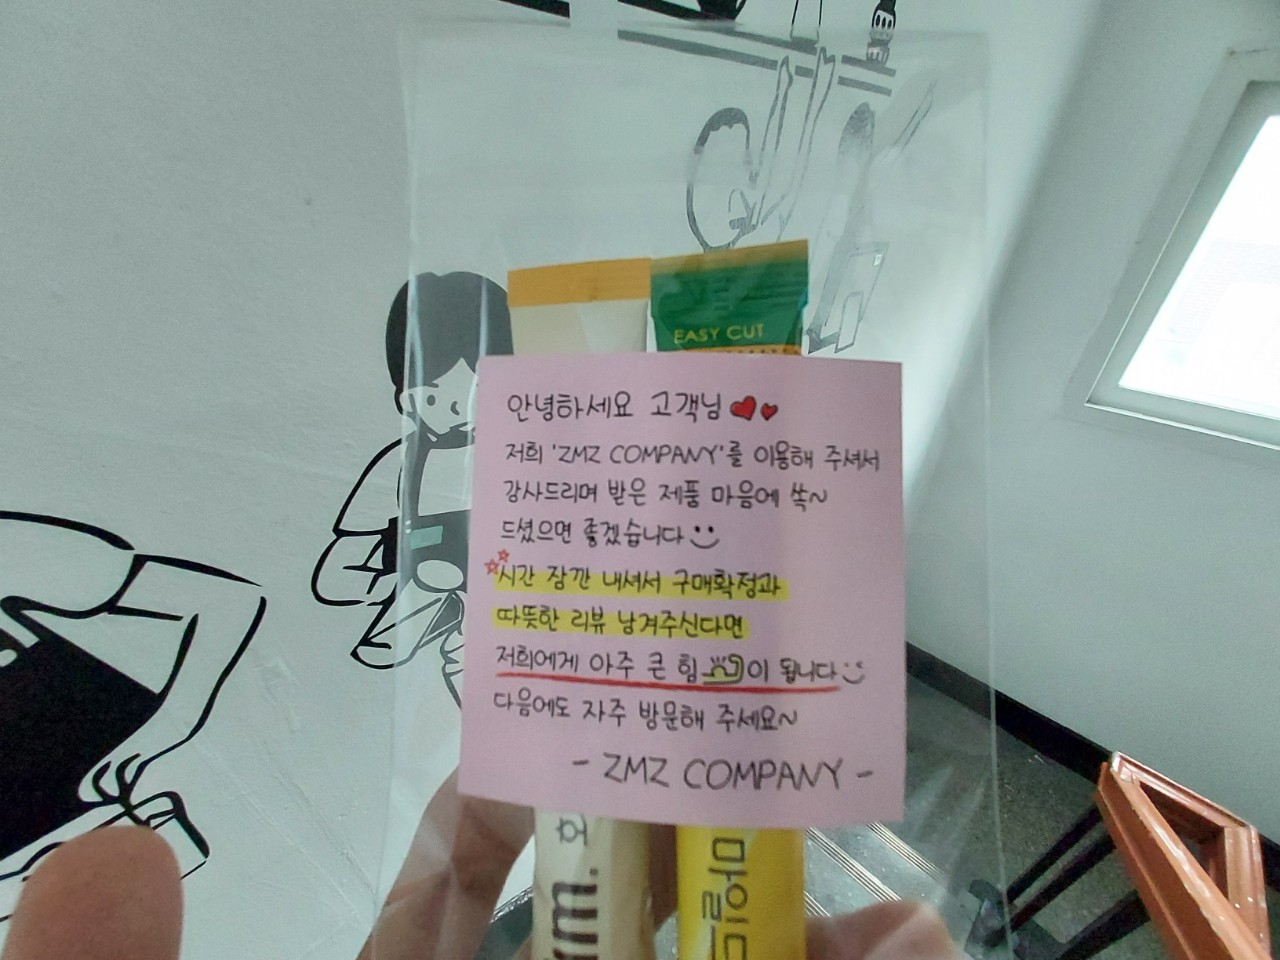 EASY CUT
안녕하세요 고객님
저희 'ZMZ COMPANY'를 이용해 주셔서
감사드리며 받은 제품 마음에 쏙~
드셨으면 좋겠습니다
시간 잠깐 내셔서 구매확정과
따뜻한 리뷰 남겨주신다면
저희에게 아주 큰 힘이 됩니다
다음에도 자주 방문해 주세요~
- ZMZ COMPANY -
마일드